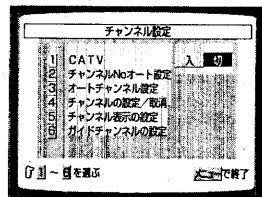 チャンネル設定
1 CATV 入 切
2 チャンネルNoオート設定
3 オートチャンネル設定
4 チャンネルの設定/取消
5 チャンネル表示の設定
6 ガイドチャンネルの設定
☞1～6を選ぶ メニューで終了